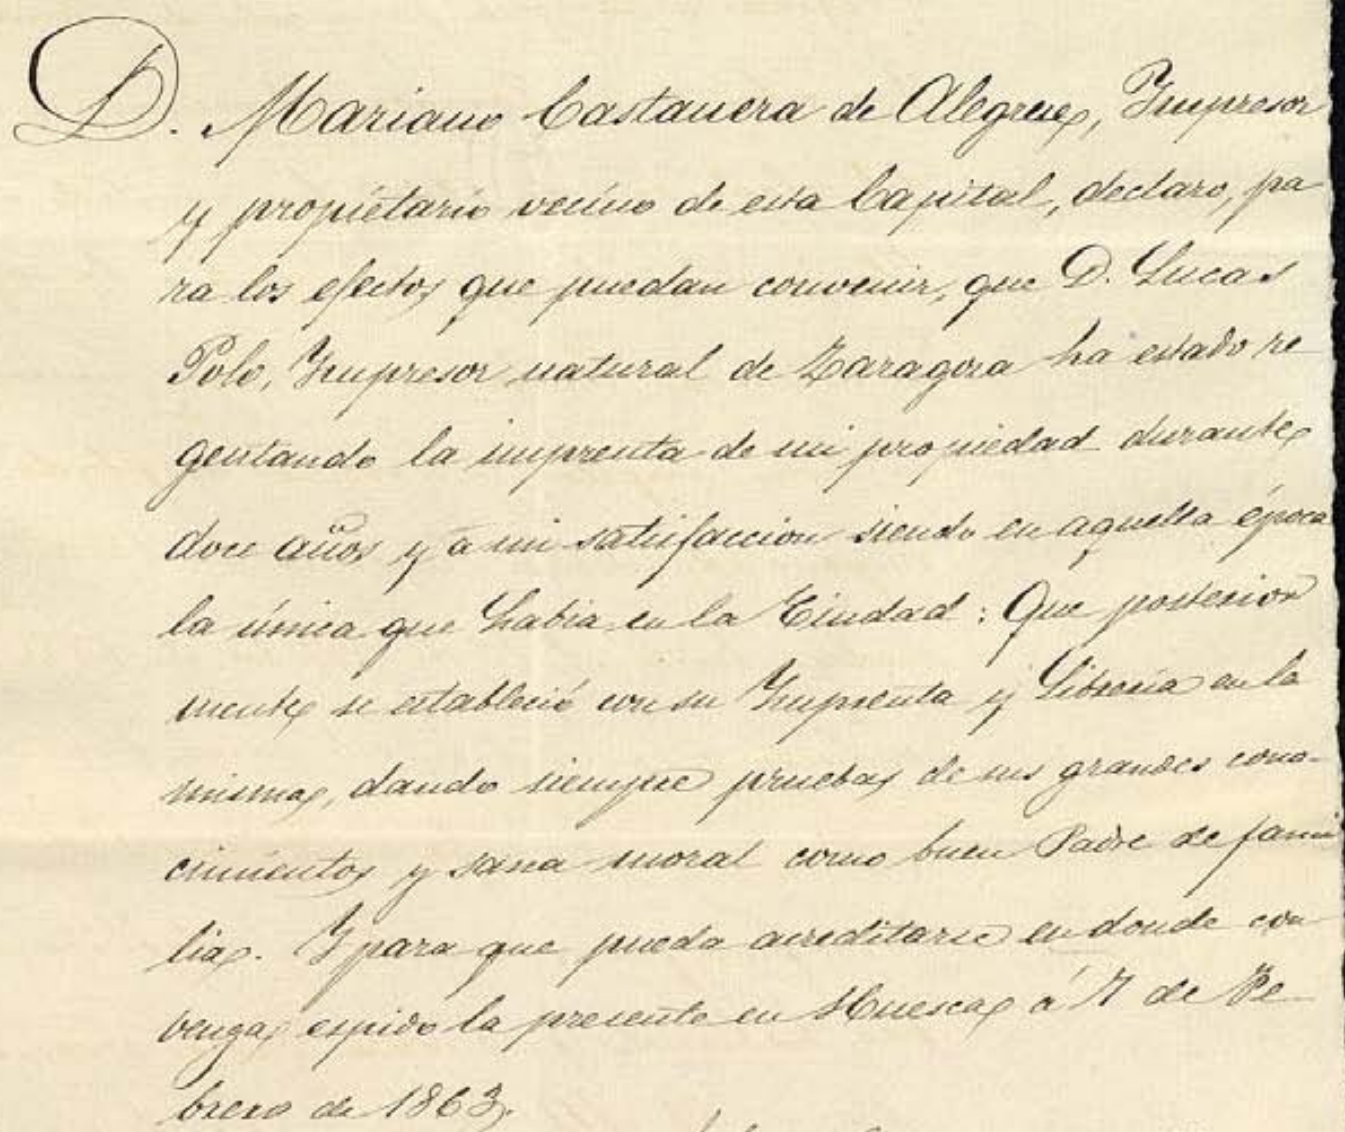 D. Mariano Castanera de Alegre, Impresor
y propietario vecino de esta Capital, declaro, pa
ra los efectos que puedan convenir, que D. Lucas
Polo, Impresor natural de Zaragoza ha estado re
gentando la imprenta de mi propiedad durante
doce años y á mi satisfaccion siendo en aquella época
la única que habia en la Ciudad: Que posterior
mente se estableció con su Imprenta y Libreria en la
misma, dando siempre pruebas de sus grandes cono-
cimientos y sana moral como buen Padre de fami
lia. Y para que pueda acreditarse en donde con
venga, espido la presente en Huesca á 7 de Fe
brero de 1863.